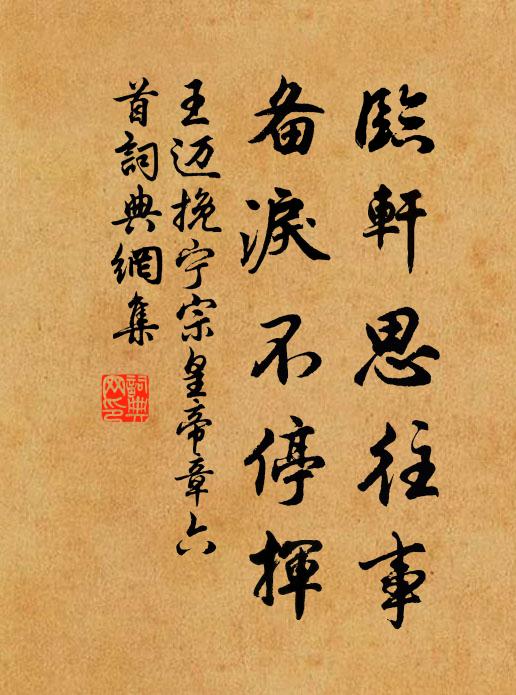 臨軒思往事
备淚不停揮
王迈挽宁宗皇帝章六
首詞典網集
詞典
网印